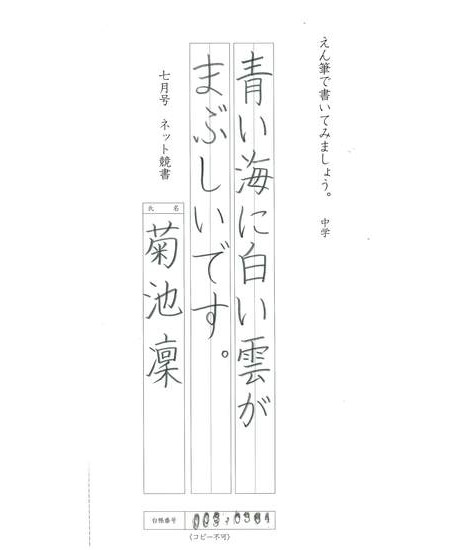 えん筆で書いてみましょう。 中学
青い海に白い雲が
まぶしいです。
七月号 ネット競書
氏名
菊池凜
台帳番号
(コピー不可)